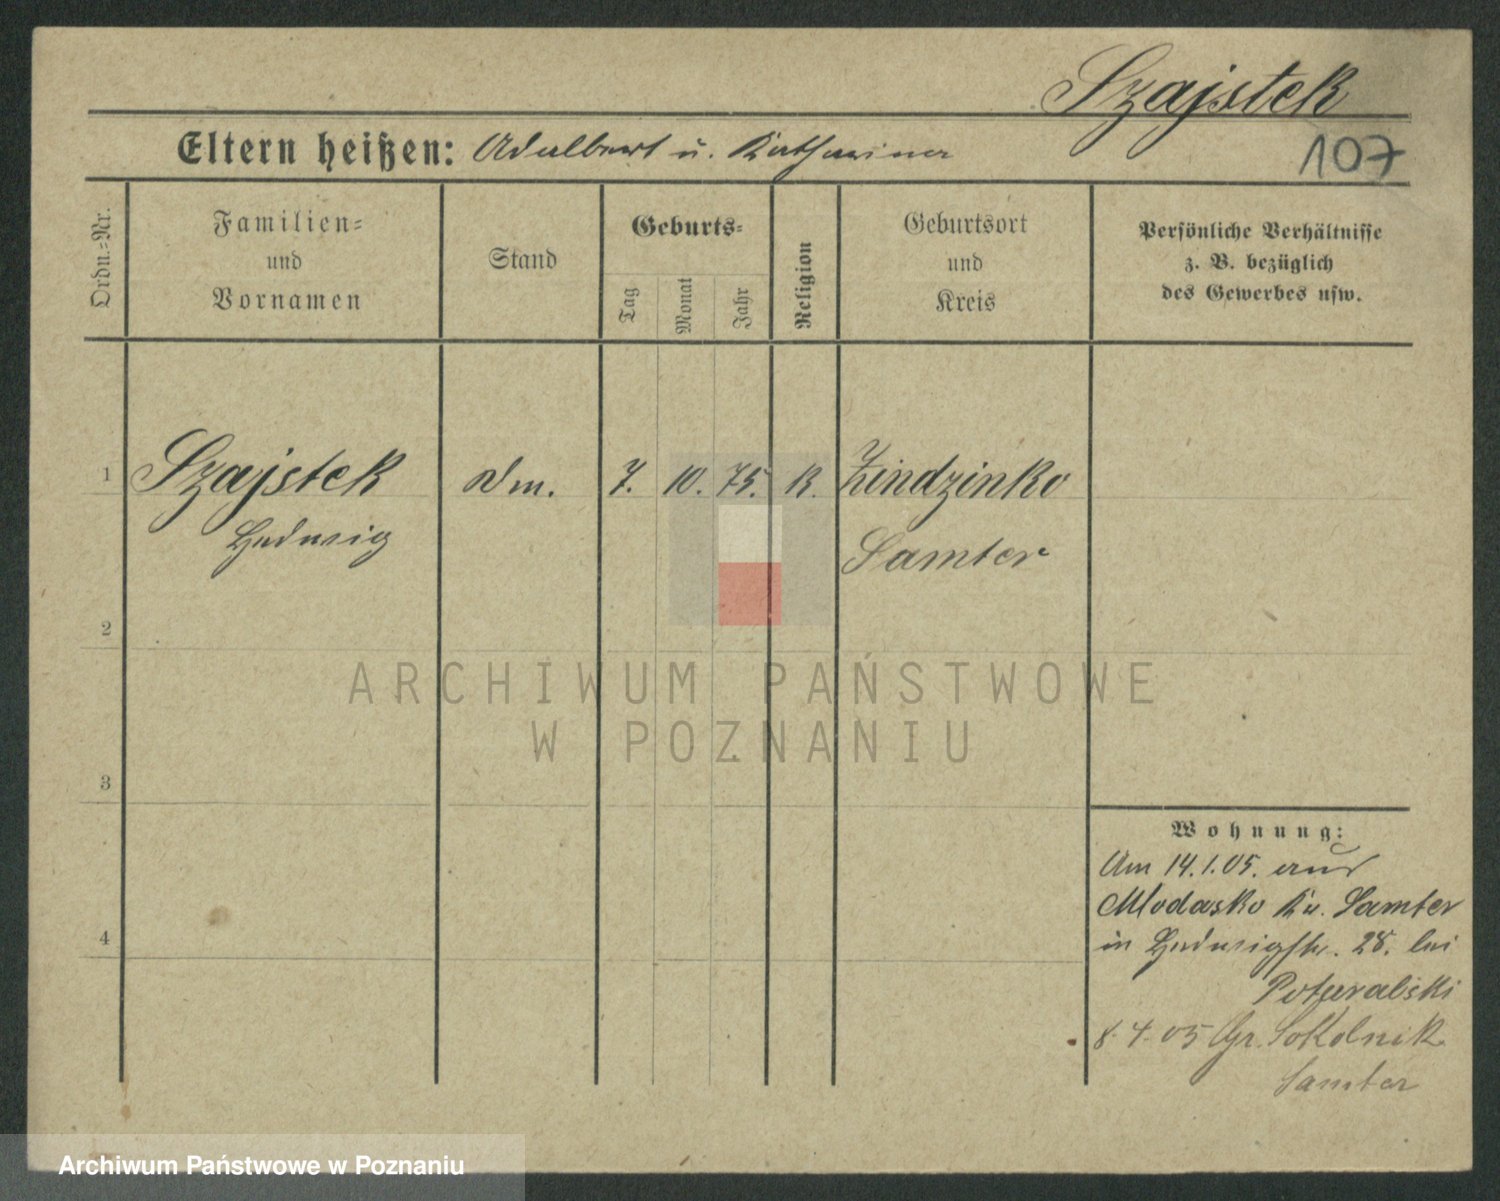 Szajstek
107
Eltern heißen: Adalbert u. Katharina
Ordn.-Nr.
Familien-
und
Vornamen
Stand
Geburts-
Tag
Monat
Jahr
Religion
Geburtsort
und
Kreis
Persönliche Verhältnisse
z. B. bezüglich
des Gewerbes usw.
1 Szajstek Dm. 7. 10. 75. K. Zindzinko
Hedwig Samter
2
3
4
Wohnung:
Am 14.1.05. aus
Mlodasko Kr. Samter
in Hedwigstr. 28. bei
8.4.05 Gr. Sokolnik
Samter
ARCHIWUM PAŃSTWOWE
W POZNANIU
Archiwum Państwowe w Poznaniu